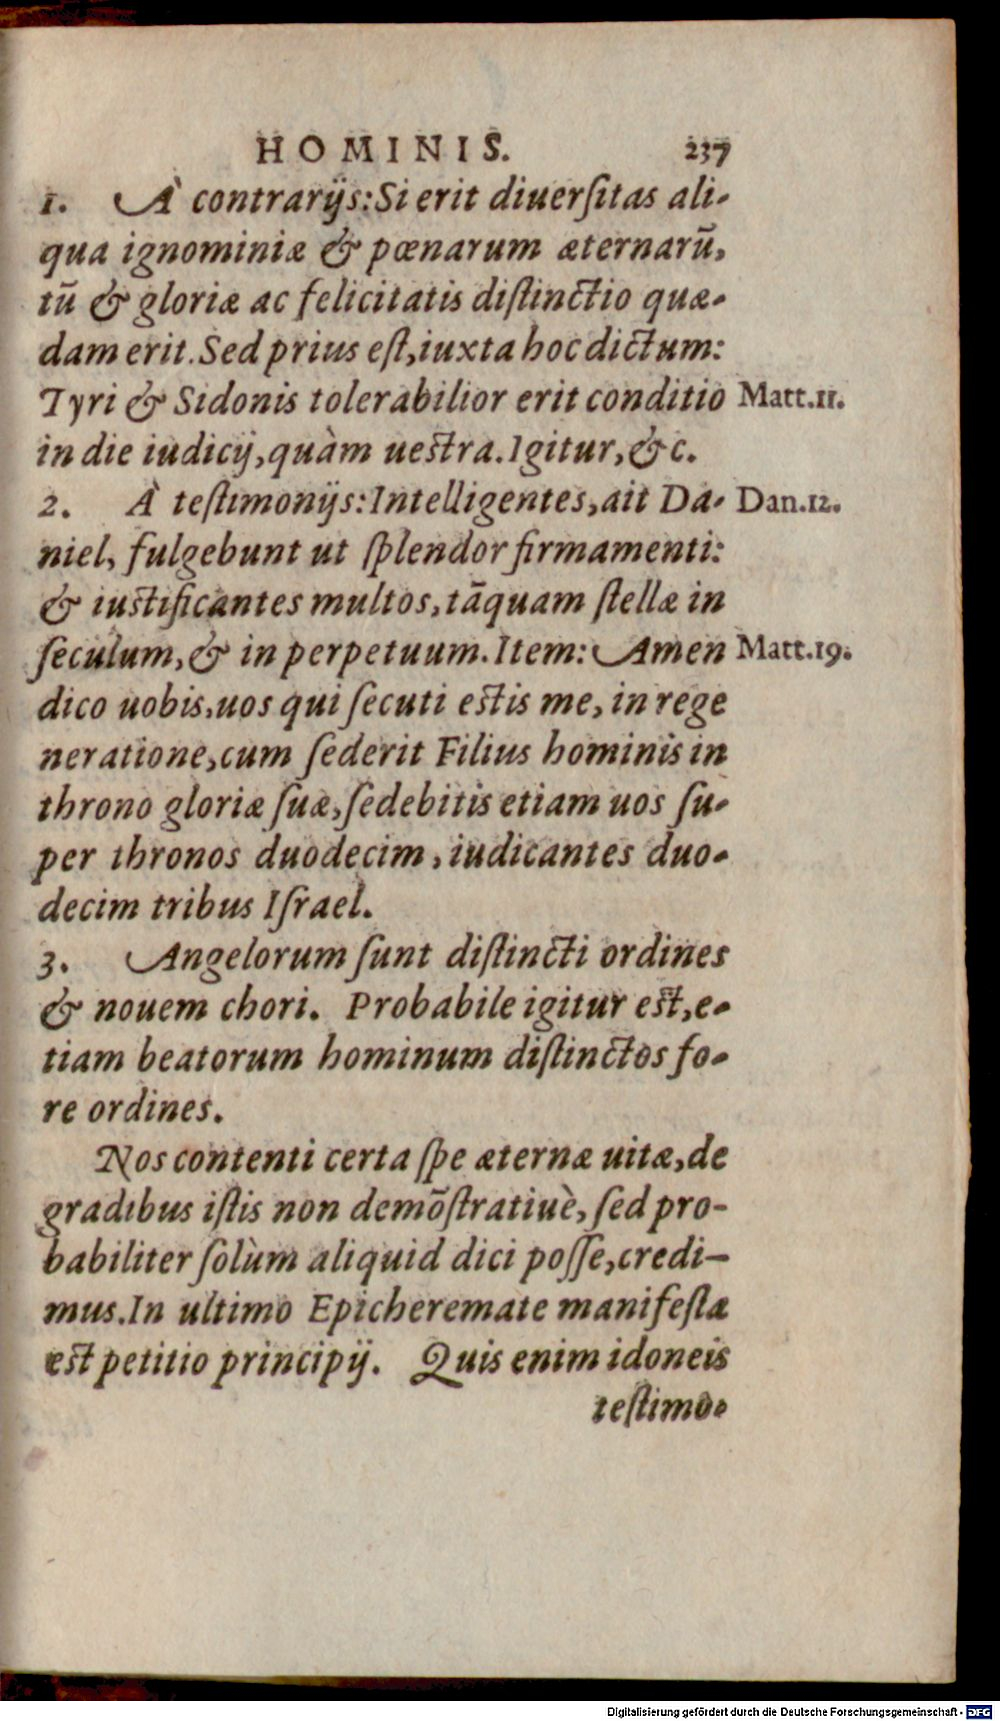 HOMINIS. 237
1. À contrarijs: Si erit diuerſitas ali-
qua ignominiæ & pœnarum æternarũ,
tũ & gloriæ ac felicitatis diſtinctio quæ-
dam erit. Sed prius eſt, iuxta hoc dictum:
Tyri & Sidonis tolerabilior erit conditio Matt.11.
in die iudicij, quàm ueſtra. Igitur, &c.
2. À teſtimonijs: Intelligentes, ait Da- Dan.12.
niel, fulgebunt ut ſplendor firmamenti:
& iuſtificantes multos, tãquam ſtellæ in
ſeculum, & in perpetuum. Item: Amen Matt.19.
dico uobis, uos qui ſecuti eſtis me, in rege
neratione, cum ſederit Filius hominis in
throno gloriæ ſuæ, ſedebitis etiam uos ſu-
per thronos duodecim, iudicantes duo-
decim tribus Iſrael.
3. Angelorum ſunt diſtincti ordines
& nouem chori. Probabile igitur eſt, e-
tiam beatorum hominum diſtinctos fo-
re ordines.
Nos contenti certa ſpe æternæ uitæ, de
gradibus iſtis non demõſtratiuè, ſed pro-
babiliter ſolùm aliquid dici poſſe, credi-
mus. In ultimo Epicheremate manifeſta
eſt petitio principij. Quis enim idoneis
teſtimo-
Digitalisierung gefördert durch die Deutsche Forschungsgemeinschaft - DFG